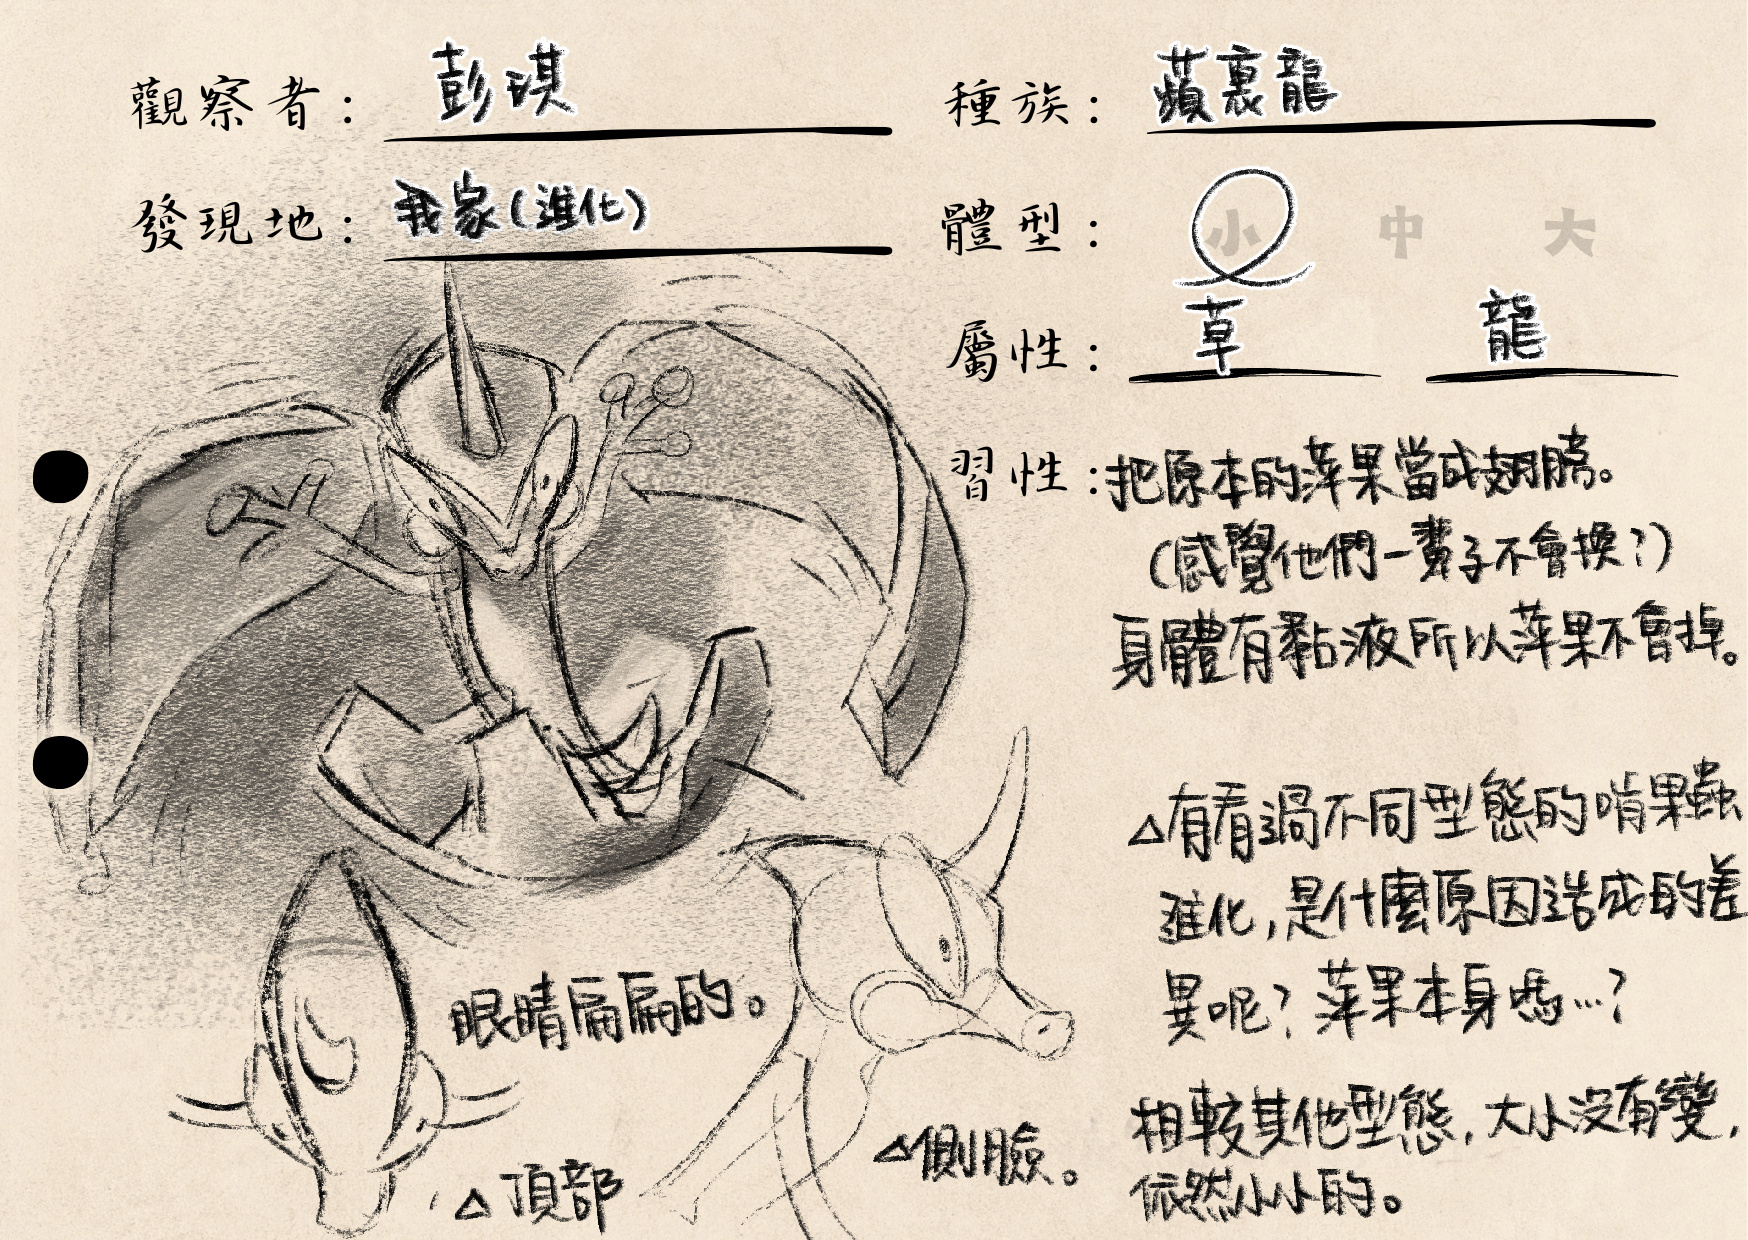 觀察者：彭琪
發現地：我家(進化)
種族：蘋裹龍
體型：小 中 大
屬性：草 龍
習性：把原本的苹果當成翅膀。
(感覺他們一輩子不會換？)
身體有黏液所以苹果不會掉。
△有看過不同型態的啃果蟲
進化，是什麼原因造成的差
異呢？苹果本身嗎…？
相較其他型態，大小沒有變，
依然小小的。
眼睛扁扁的。
△頂部
△側臉。